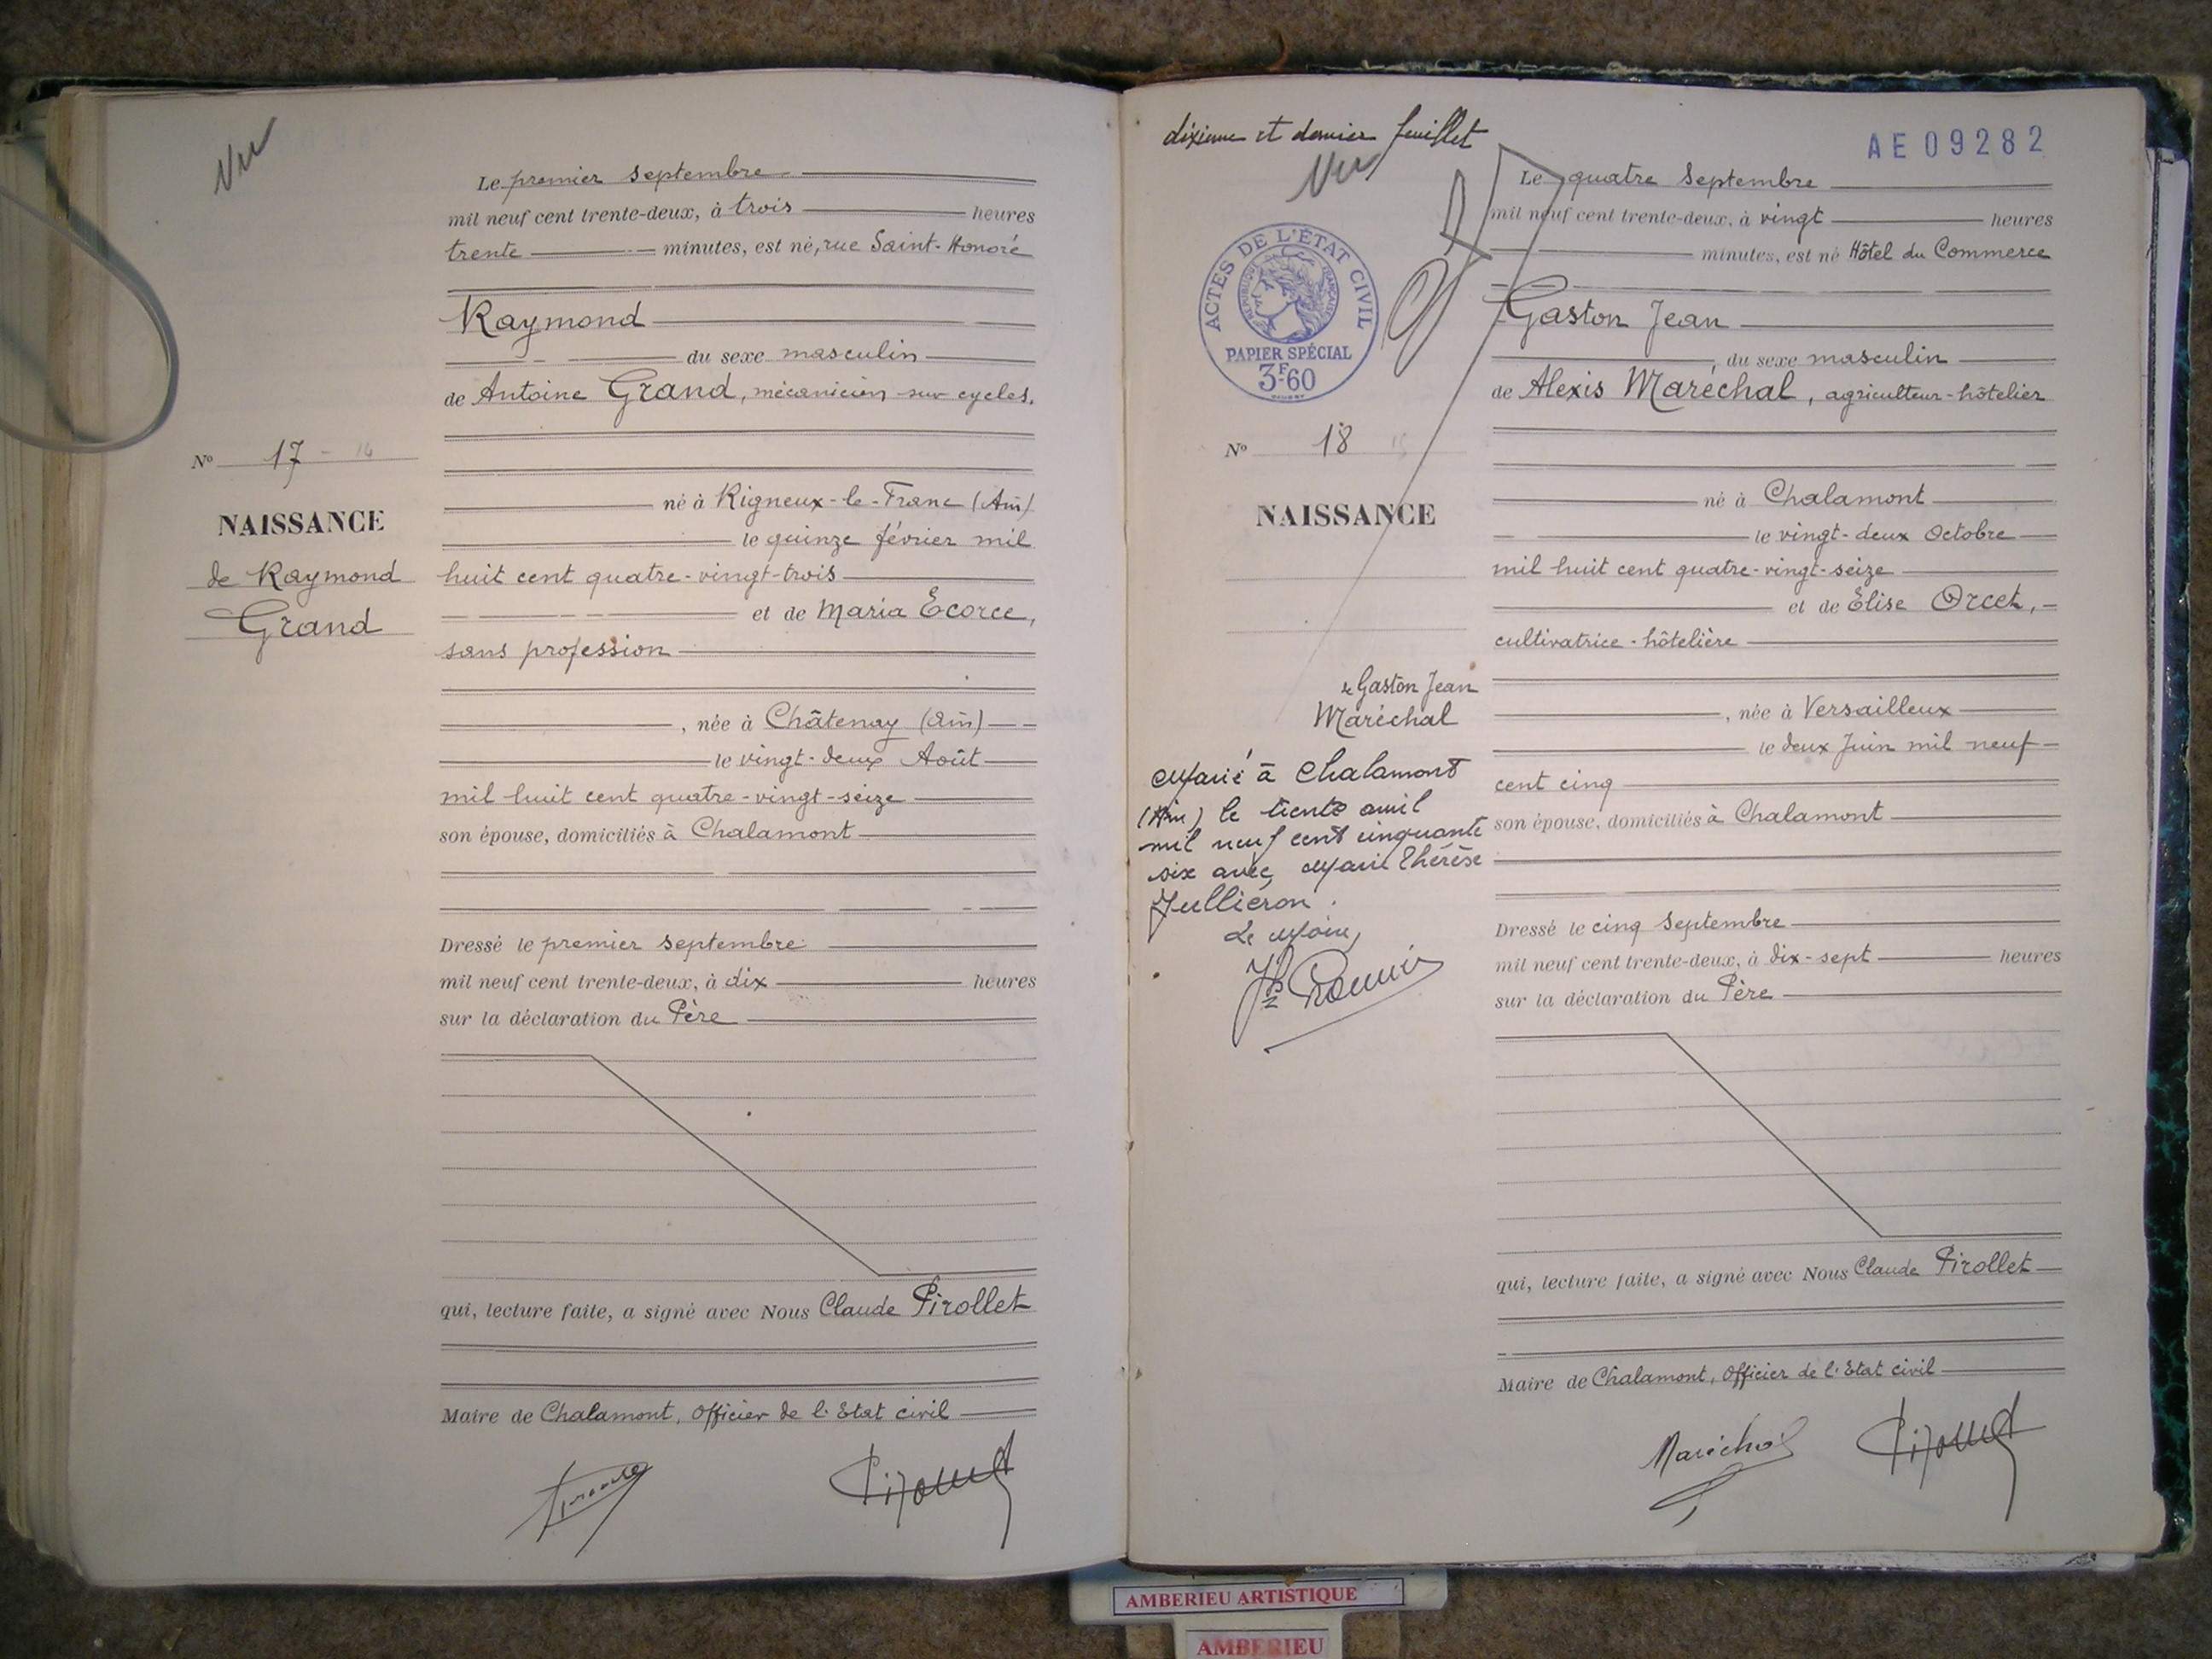 Vu
Le premier septembre
mil neuf cent trente-deux, à trois heures
trente minutes, est né, rue Saint-Honoré
Raymond
du sexe masculin
de Antoine Grand, mécanicien sur cycles.
né à Rigneux-le-Franc (Ain)
le quinze février mil
huit cent quatre-vingt-trois
et de Maria Ecorce,
sans profession
, née à Châtenay (Ain)
le vingt-deux Août
mil huit cent quatre-vingt-seize
son épouse, domiciliés à Chalamont
Dressé le premier septembre
mil neuf cent trente-deux, à dix heures
sur la déclaration du Père
qui, lecture faite, a signé avec Nous Claude Pirollet
Maire de Chalamont, Officier de l'Etat civil
Nº 17
NAISSANCE
de Raymond
Grand
Pirollet
dixième et dernier feuillet
Vu
AE 09282
ACTES DE L'ÉTAT CIVIL
RÉPUBLIQUE FRANÇAISE
PAPIER SPÉCIAL
3F60
Nº 18
NAISSANCE
de Gaston Jean
Maréchal
Marié à Chalamont
(Ain) le trente avril
mil neuf cent cinquante
six avec Marie Thérèse
Jullièron.
Le Maire,
Le quatre Septembre
mil neuf cent trente-deux, à vingt heures
minutes, est né Hôtel du Commerce
Gaston Jean
du sexe masculin
de Alexis Maréchal, agriculteur-hôtelier
né à Chalamont
le vingt-deux Octobre
mil huit cent quatre-vingt-seize
et de Elise Orcet,
cultivatrice-hôtelière
, née à Versailleux
le deux Juin mil neuf
cent cinq
son épouse, domiciliés à Chalamont
Dressé le cinq Septembre
mil neuf cent trente-deux, à dix-sept heures
sur la déclaration du Père
qui, lecture faite, a signé avec Nous Claude Pirollet
Maire de Chalamont, Officier de l'Etat civil
Maréchal Pirollet
AMBERIEU ARTISTIQUE
AMBERIEU